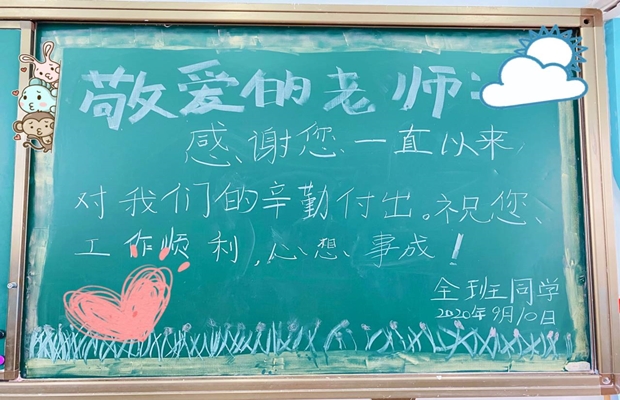 敬爱的老师:
感谢您一直以来
对我们的辛勤付出。祝您、
工作顺利,心想事成!
全班同学
2020年9月10日